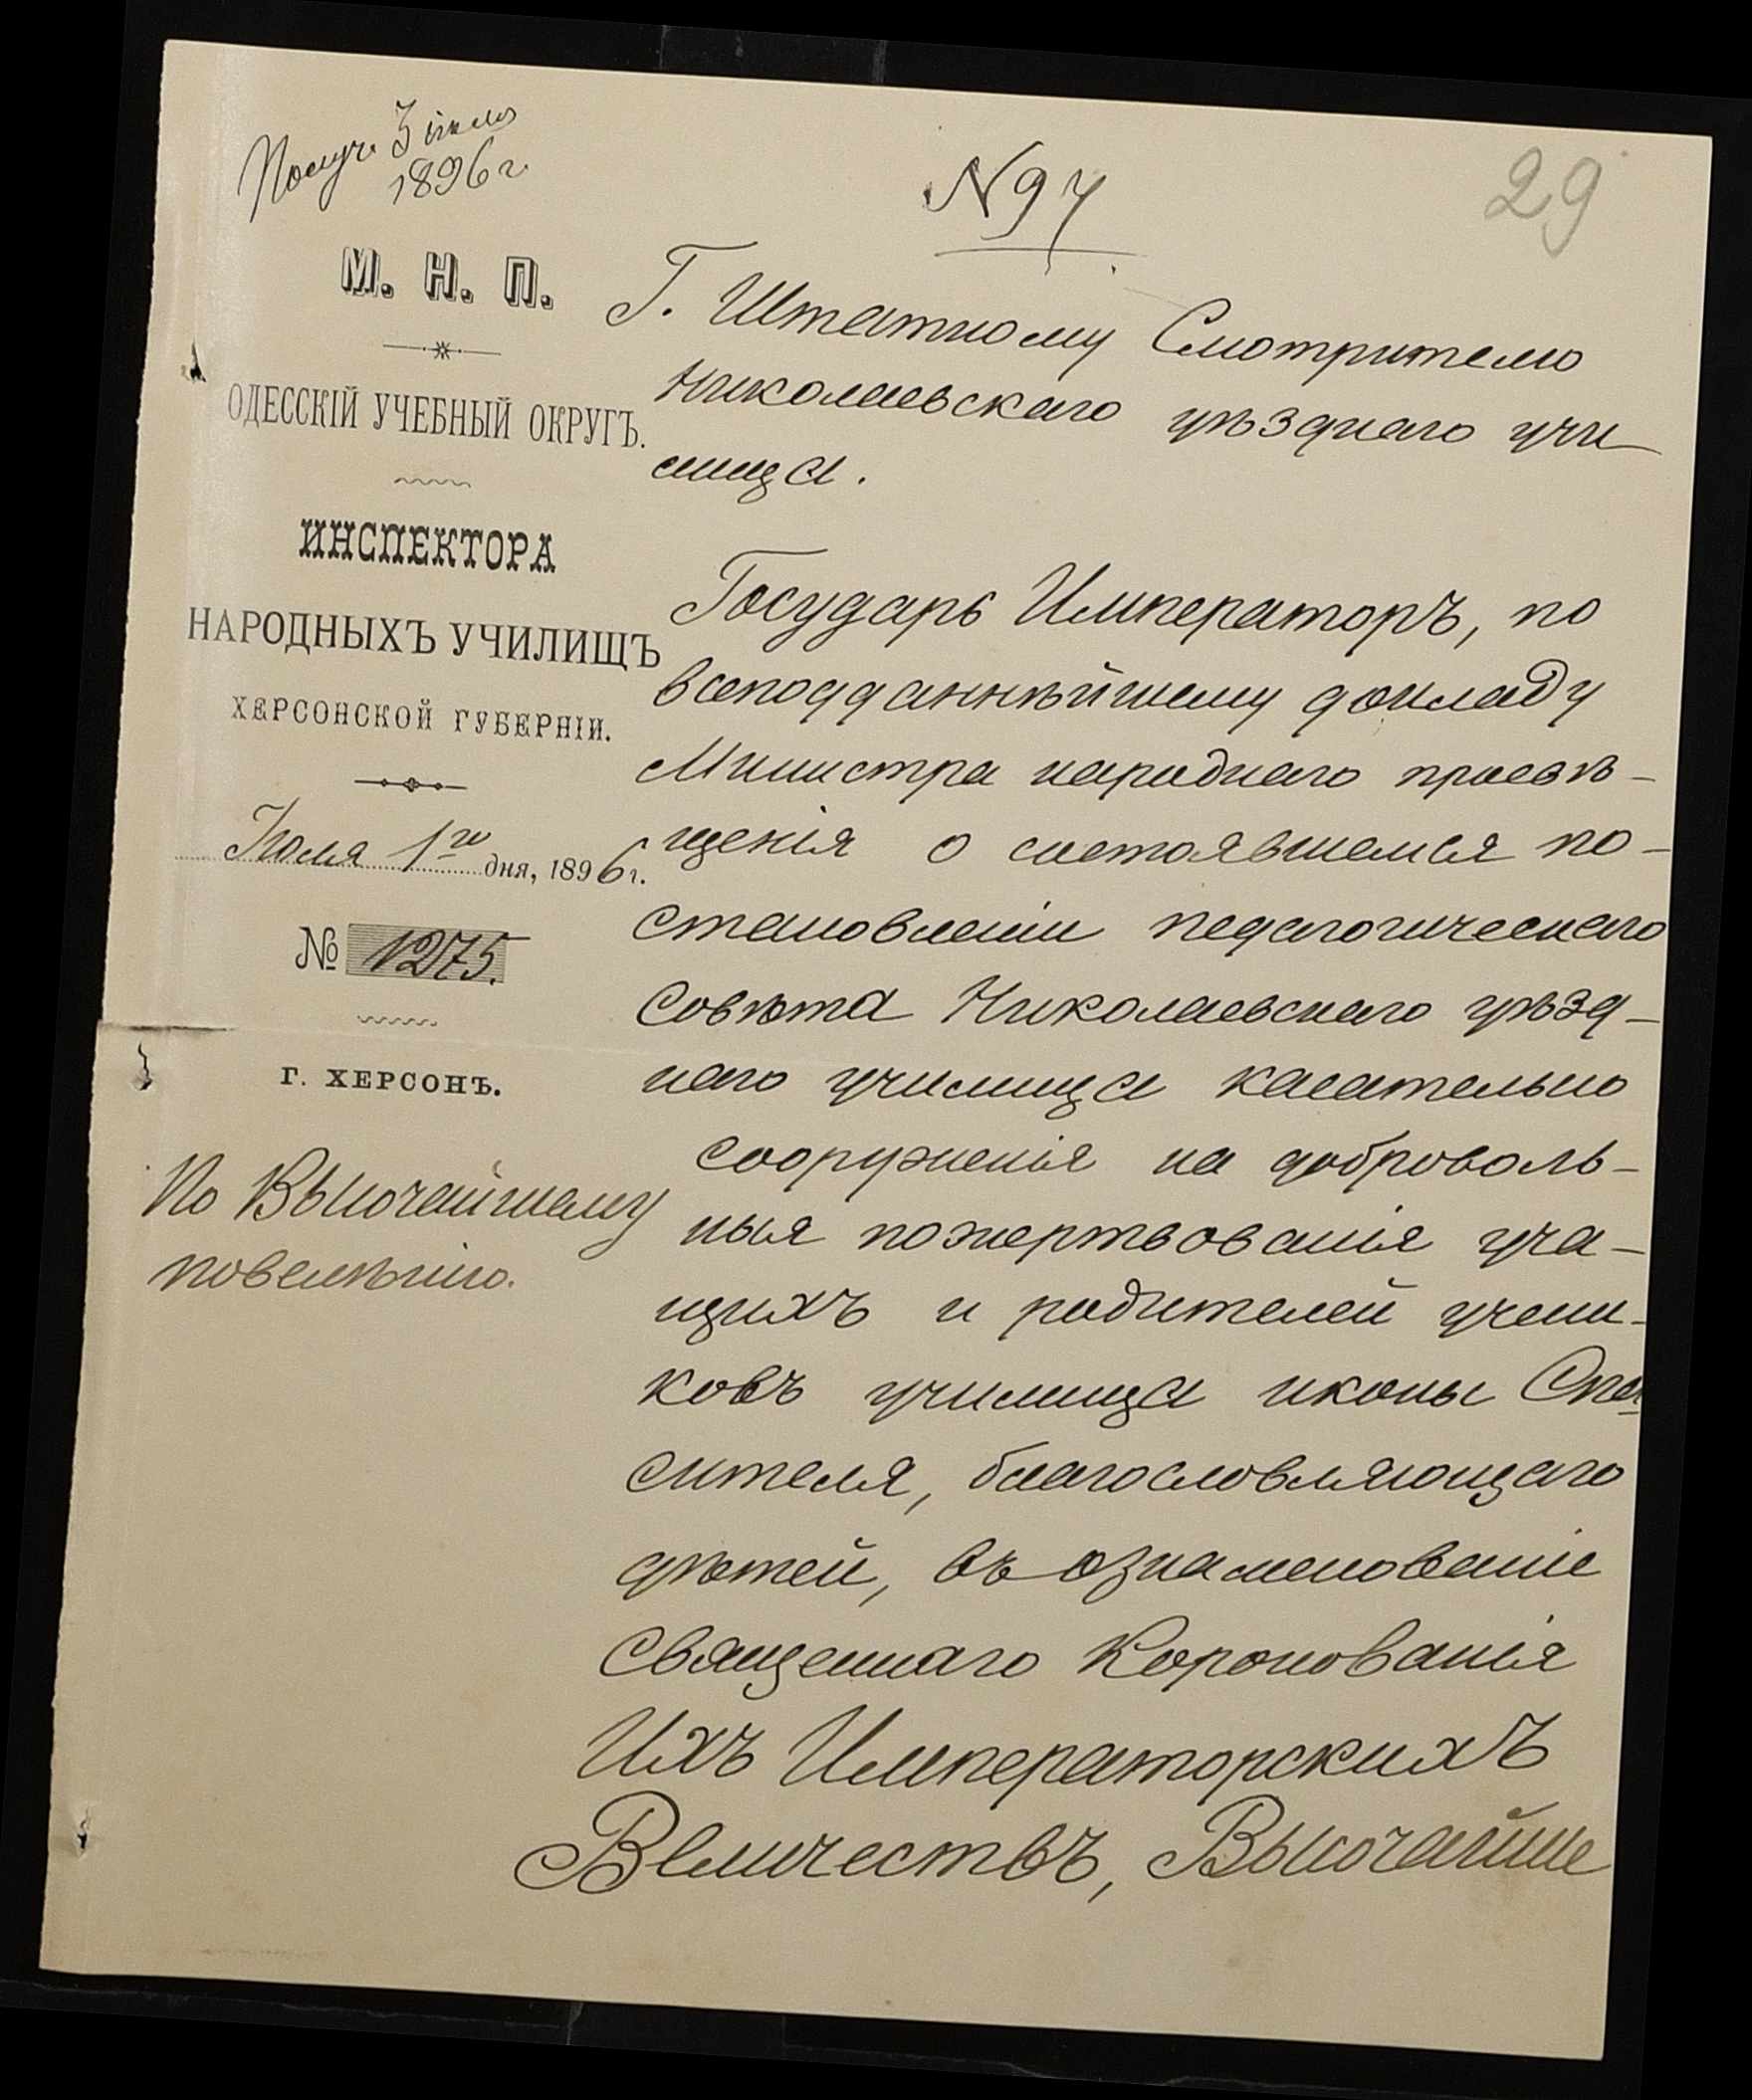 Получ. 3 іюля
1896 г.
№ 97
29
М. Н. П.
ОДЕССКІЙ УЧЕБНЫЙ ОКРУГЪ.
ИНСПЕКТОРА
НАРОДНЫХЪ УЧИЛИЩЪ
ХЕРСОНСКОЙ ГУБЕРНІИ.
Іюля 1го дня, 1896 г.
№ 1275.
Г. ХЕРСОНЪ.
По Высочайшему
повелѣнію.
Г. Штатному Смотрителю
Николаевскаго уѣзднаго учи
лища.
Государь Императоръ, по
всеподданнѣйшему докладу
Министра народнаго просвѣ-
щенія о состоявшемся по-
становленіи педагогическаго
совѣта Николаевскаго уѣзд-
наго училища касательно
сооруженія на доброволь-
ныя пожертвованія уча-
щихъ и родителей учени-
ковъ училища иконы Спа-
сителя, благословляющаго
дѣтей, въ ознаменованіе
Священнаго Коронованія
Ихъ Императорскихъ
Величествъ, Высочайше